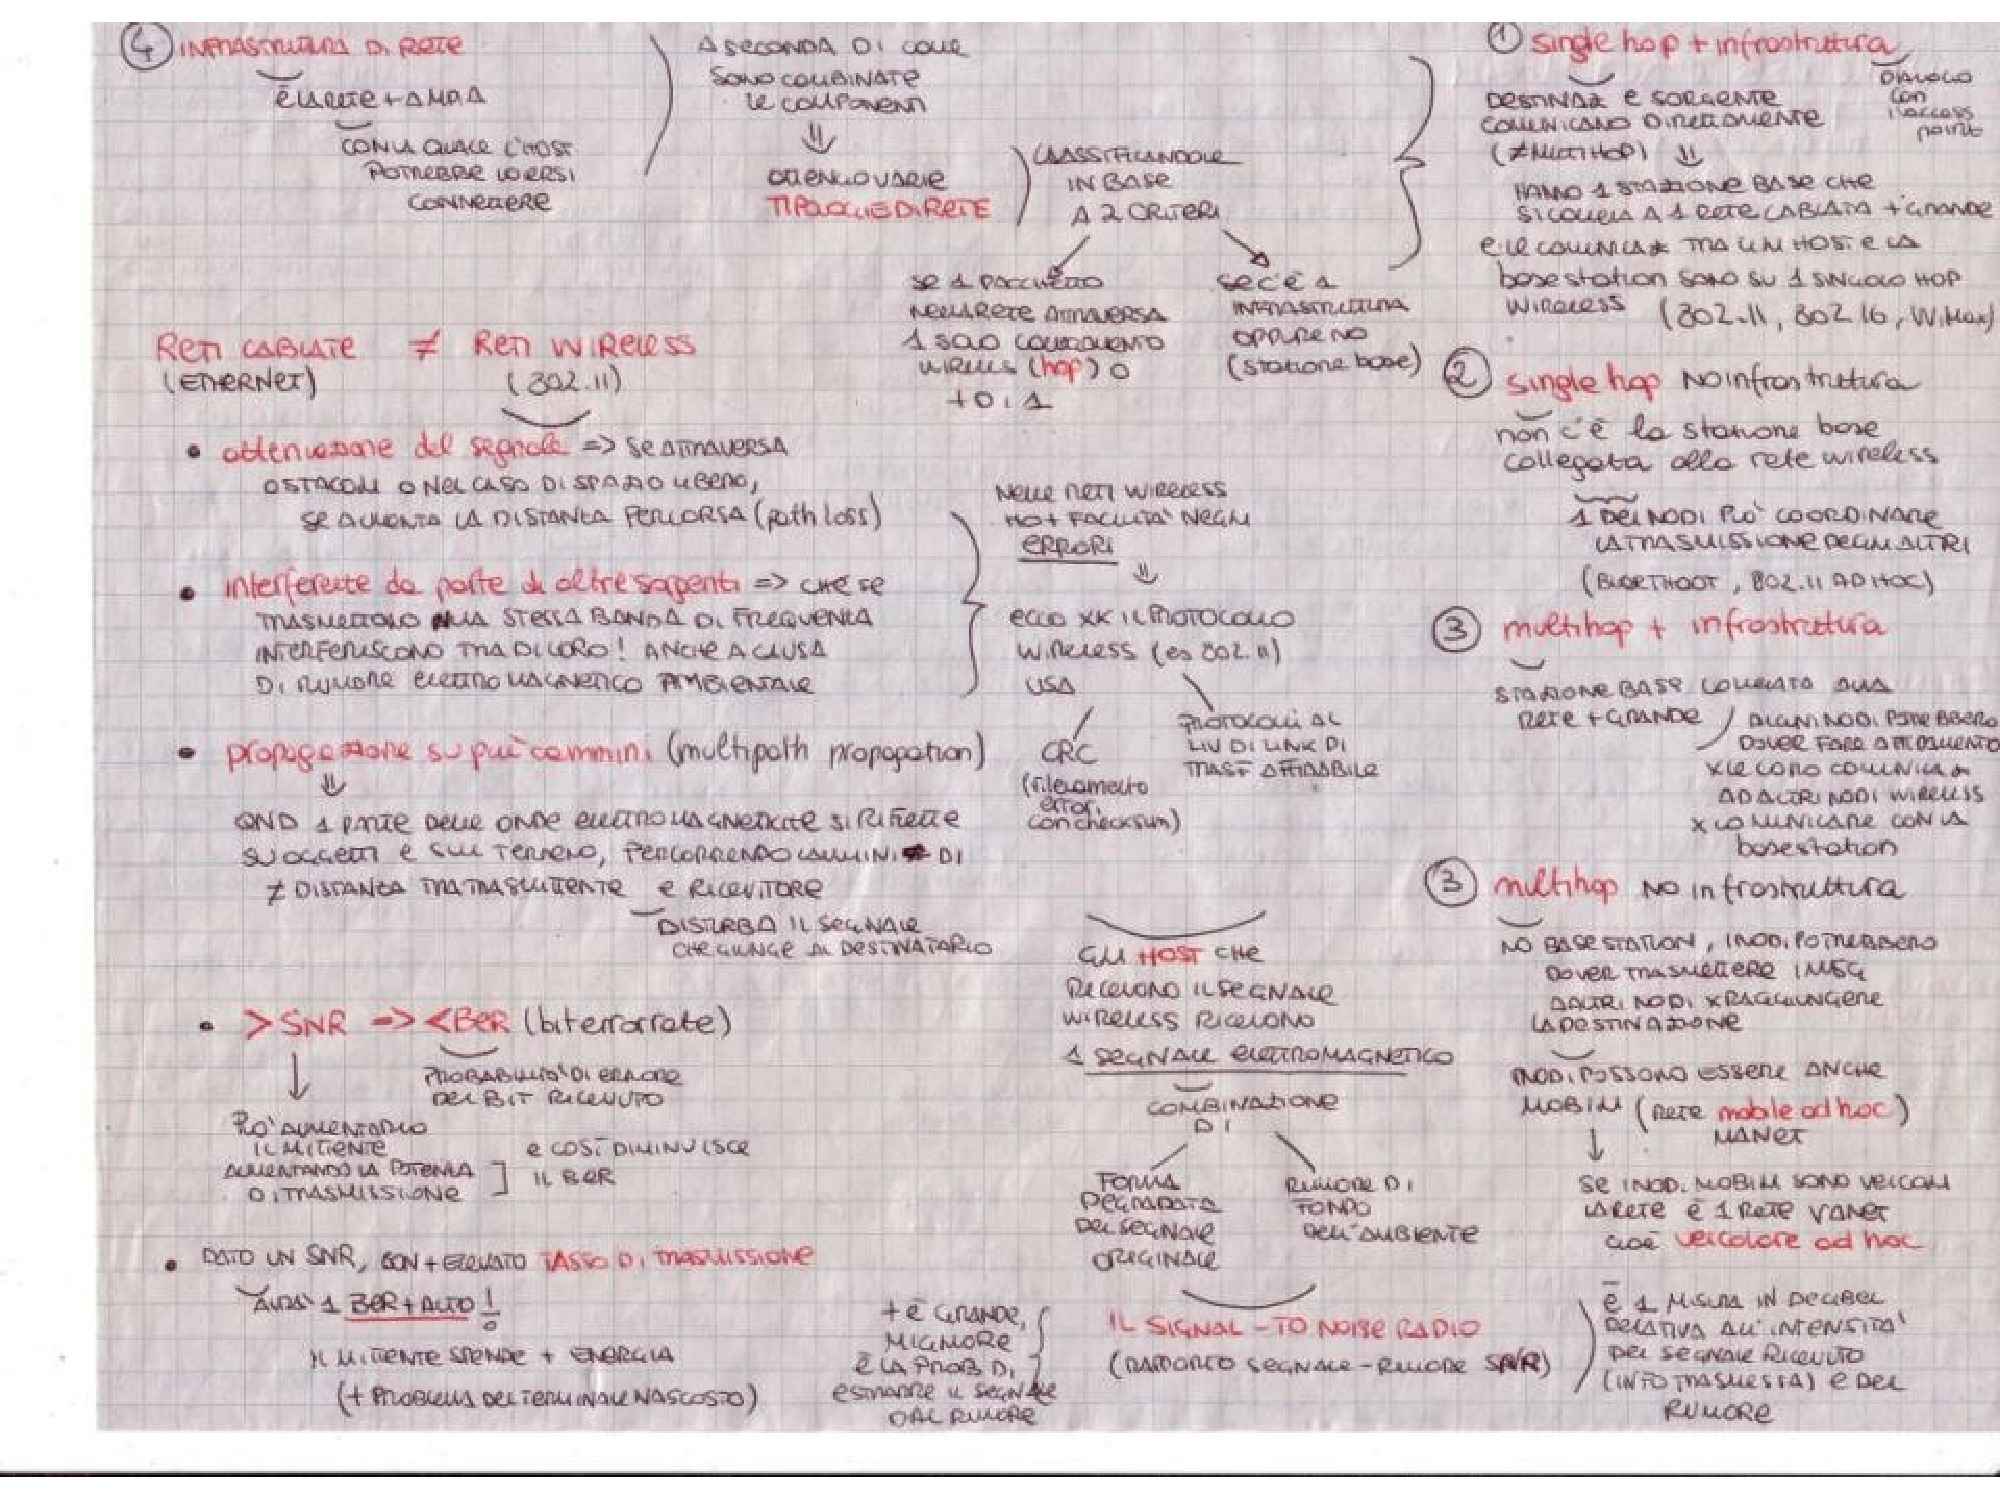 4 INFRASTRUTTURA DI RETE
È LA RETE + AMPIA
CON LA QUALE L'HOST
POTREBBE VOLERSI
CONNETTERE
A SECONDA DI COME
SONO COMBINATE
LE COMPONENTI
⇓
OTTENGO VARIE
TIPOLOGIE DI RETE
CLASSIFICANDOLE
IN BASE
A 2 CRITERI
SE 1 PACCHETTO
NELLA RETE ATTRAVERSA
1 SOLO COLLEGAMENTO
WIRELESS (hop) O
+ DI 1
SE C'È 1
INFRASTRUTTURA
OPPURE NO
(stazione base)
1 single hop + infrastruttura
DIALOGO
con
l'access
point
DESTINAZ E SORGENTE
COMUNICANO DIRETTAMENTE
(≠ MULTIHOP) ⇓
HANNO 1 STAZIONE BASE CHE
SI COLLEGA A 1 RETE CABLATA + GRANDE
E LE COMUNICAZ TRA UN HOST E LA
base station SONO SU 1 SINGOLO HOP
WIRELESS (802.11, 802.16, WiMax)
2 single hop NO infrastruttura
non c'è la stazione base
collegata alla rete wireless
1 DEI NODI PUÒ COORDINARE
LA TRASMISSIONE DEGLI ALTRI
(BLUETHOOT, 802.11 AD HOC)
3 multihop + infrastruttura
STAZIONE BASE COLLEGATA ALLA
RETE + GRANDE
ALCUNI NODI POTREBBERO
DOVER FARE AFFIDAMENTO
X LE LORO COMUNICAZ
AD ALTRI NODI WIRELESS
X COMUNICARE CON LA
base station
3 multihop NO infrastruttura
NO BASE STATION, I NODI POTREBBERO
DOVER TRASMETTERE I MSG
A ALTRI NODI X RAGGIUNGERE
LA DESTINAZIONE
I NODI POSSONO ESSERE ANCHE
MOBILI (RETE mobile ad hoc)
MANET
↓
SE I NODI MOBILI SONO VEICOLI
LA RETE È 1 RETE VANET
CIOÈ veicolare ad hoc
RETI CABLATE ≠ RETI WIRELESS
(ETHERNET) (802.11)
• attenuazione del segnale => SE ATTRAVERSA
OSTACOLI O NEL CASO DI SPAZIO LIBERO,
SE AUMENTA LA DISTANZA PERCORSA (path loss)
• interferenze da parte di altre sorgenti => CHE SE
TRASMETTONO NELLA STESSA BANDA DI FREQUENZA
INTERFERISCONO TRA DI LORO! ANCHE A CAUSA
DI RUMORE ELETTROMAGNETICO AMBIENTALE
• propagazione su più cammini (multipath propagation)
⇓
QND 1 PARTE DELLE ONDE ELETTROMAGNETICHE SI RIFLETTE
SU OGGETTI E SUL TERRENO, PERCORRENDO CAMMINI DI
≠ DISTANZA TRA TRASMITTENTE E RICEVITORE
DISTURBA IL SEGNALE
CHE GIUNGE AL DESTINATARIO
NELLE RETI WIRELESS
HO + FACILITÀ NEGLI
ERRORI
⇓
ECCO XK IL PROTOCOLLO
WIRELESS (es 802.11)
USA
CRC
(rilevamento
errori
con checksum)
PROTOCOLLI AL
LIV DI LINK DI
TRASF AFFIDABILE
• > SNR => < BER (bit error rate)
PROBABILITÀ DI ERRORE
DEL BIT RICEVUTO
PUÒ AUMENTARLO
IL MITTENTE
AUMENTANDO LA POTENZA
DI TRASMISSIONE
E COSÌ DIMINUISCE
IL BER
• DATO UN SNR, CON + ELEVATO TASSO DI TRASMISSIONE
AVRÀ 1 BER + ALTO!
IL MITTENTE SPENDE + ENERGIA
(+ PROBLEMA DEL TERMINALE NASCOSTO)
GLI HOST CHE
RICEVONO IL SEGNALE
WIRELESS RICEVONO
1 SEGNALE ELETTROMAGNETICO
COMBINAZIONE
DI
FORMA
DEGRADATA
DEL SEGNALE
ORIGINALE
RUMORE DI
FONDO
DELL'AMBIENTE
IL SIGNAL-TO NOISE RADIO
(RAPPORTO SEGNALE-RUMORE SNR)
+ È GRANDE,
MIGLIORE
È LA PROB DI
ESTRARRE IL SEGNALE
DAL RUMORE
È 1 MISURA IN DECIBEL
RELATIVA ALL'INTENSITÀ
DEL SEGNALE RICEVUTO
(INFO TRASMESSA) E DEL
RUMORE